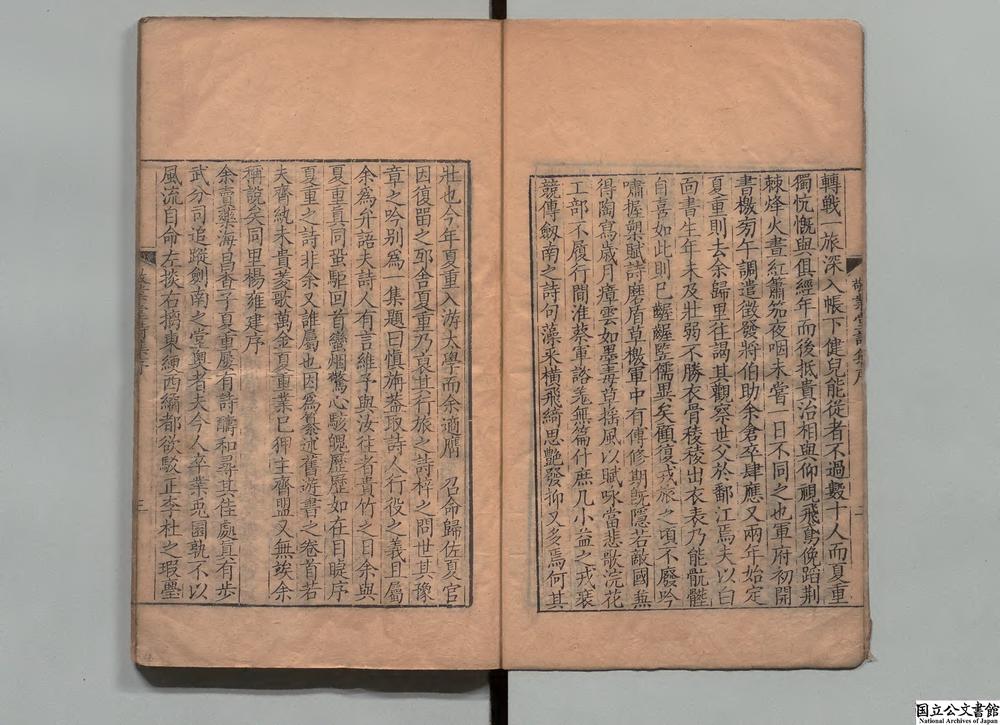 轉戰　旅深入帳下健兒能從者不過數十人而夏重
獨忼慨與俱經年而後抵貴治相與仰視飛鳶俛蹈荆
棘烽火晝紅簫笳夜咽未嘗一日不同之也軍府初開
書檄旁午調遣徵發將伯助余倉卒肆應又兩年始定
夏重則去余歸里往謁其觀察世父於鄱江焉夫以白
面書生年未及壯弱不勝衣骨稜稜出衣表乃能骯髒
自喜如此則已齷齪豎儒異矣顧復戎旅之頃不廢吟
嘯握槊賦詩磨盾草檄軍中有傅修期旣隱若敵國無
得陶寫歲月瘴雲如墨毒草搖風以賦咏當悲歌浣花
工部不履行間淮蔡軍諮羌無篇什庶几小益之戎裘
競傳劔南之詩句藻采橫飛綺思艷發抑又多焉何其
壯也今年夏重入游太學而余適膺　召命歸佐夏官
因復畱之邸舍夏重乃裒其行旅之詩梓之問世其豫
章之吟别爲一集題曰愼旃蓋取詩人行役之義且屬
余爲弁語夫詩人有言維予與汝往者貴竹之日余與
夏重眞同蛩駏回首蠻烟驚心駭魄歷歷如在目睫序
夏重之詩非余又誰屬也因爲纂述舊遊書之卷首若
夫齊紈未貴菱歌萬金夏重業已狎主齊盟又無竢余
稱說矣同里楊雍建序
余賣藥海昌香子夏重屢有詩譸和尋其住處眞有步
武分司追蹤劍南之堂奧者夫今人卒業兎園孰不以
風流自命左掞右摛東綆西縮都欲駁正李杜之瑕璺
三
国立公文書館
National Archives of Japan